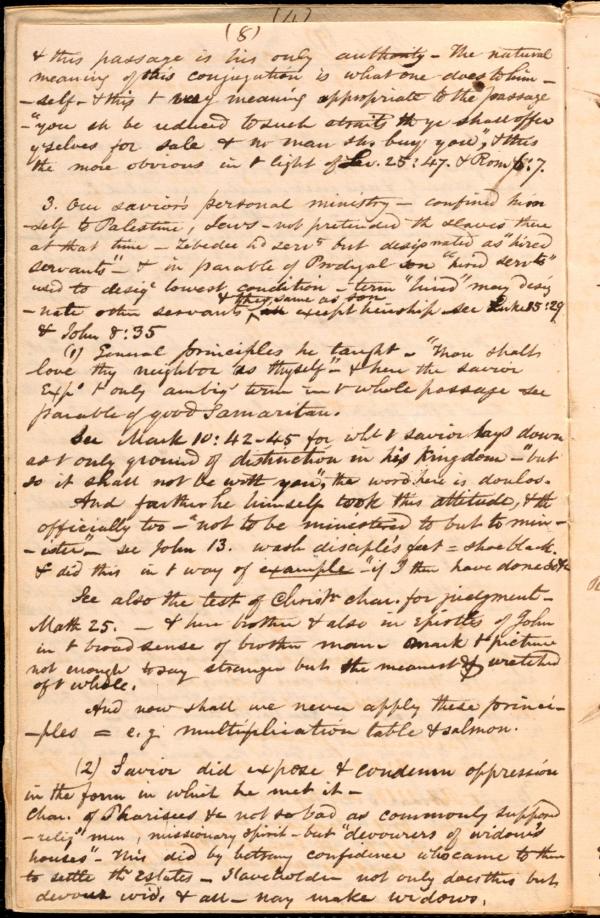 (4)
(8)
& this passage is his only authority – The natural
meaning of this conjugation is what one does to him-
-self – & this t very meaning appropriate to the passage
– "you sh be reduced to such straits th ye shall offer
yselves for sale & no man sh. buy you", & this
the more obvious in t light of Lev. 25:47. & Rom 6:7.
3. Our savior's personal ministry – confined him
-self to Palestine, Jews – not pretended th slaves there
at that time – Zebedee hd servts but designated as "hired
servants" – & in parable of Prodigal son "hired servts"
used to desig lowest condition – term "hired" may desig
& they same as son
-nate other servants except heirship see Luke 15:29
& John 8:35
(1) General principles he taught – "Thou shalt
love thy neighbor as thyself" – & here the savior
Expd t only ambig term in t whole passage see
parable of good Samaritan.
See Mark 10:42-45 for wht t savior lays down
as t only ground of distinction in his kingdom – "but
so it shall not be with you", the word here is doulos.
And farther he himself took this attitude, & th
officially too – "not to be ministered to but to min-
-ister" – see John 13. wash disciple's feet = shoe black.
& did this in t way of example – "if I then have done
See also the test of Christn char. for judgment –
Math 25. – & here brother & also in Epistles of John
in t broad sense of brother man – mark t picture
not enough to say stranger but the meanest & wretched
of t whole.
And now shall we never apply these princi-
-ples = e.g. multiplication table & salmon.
(2) Savior did expose & condemn oppression
in the form in which he met it –
Char. of Pharisees &c not so bad as commonly supposed
– relig men, missionary spirit – but "devourers of widow's
houses" – This did by betray confidence who came to them
to settle th Estates – Slaveholder not only does this but
devour wid. & all – nay make widows.